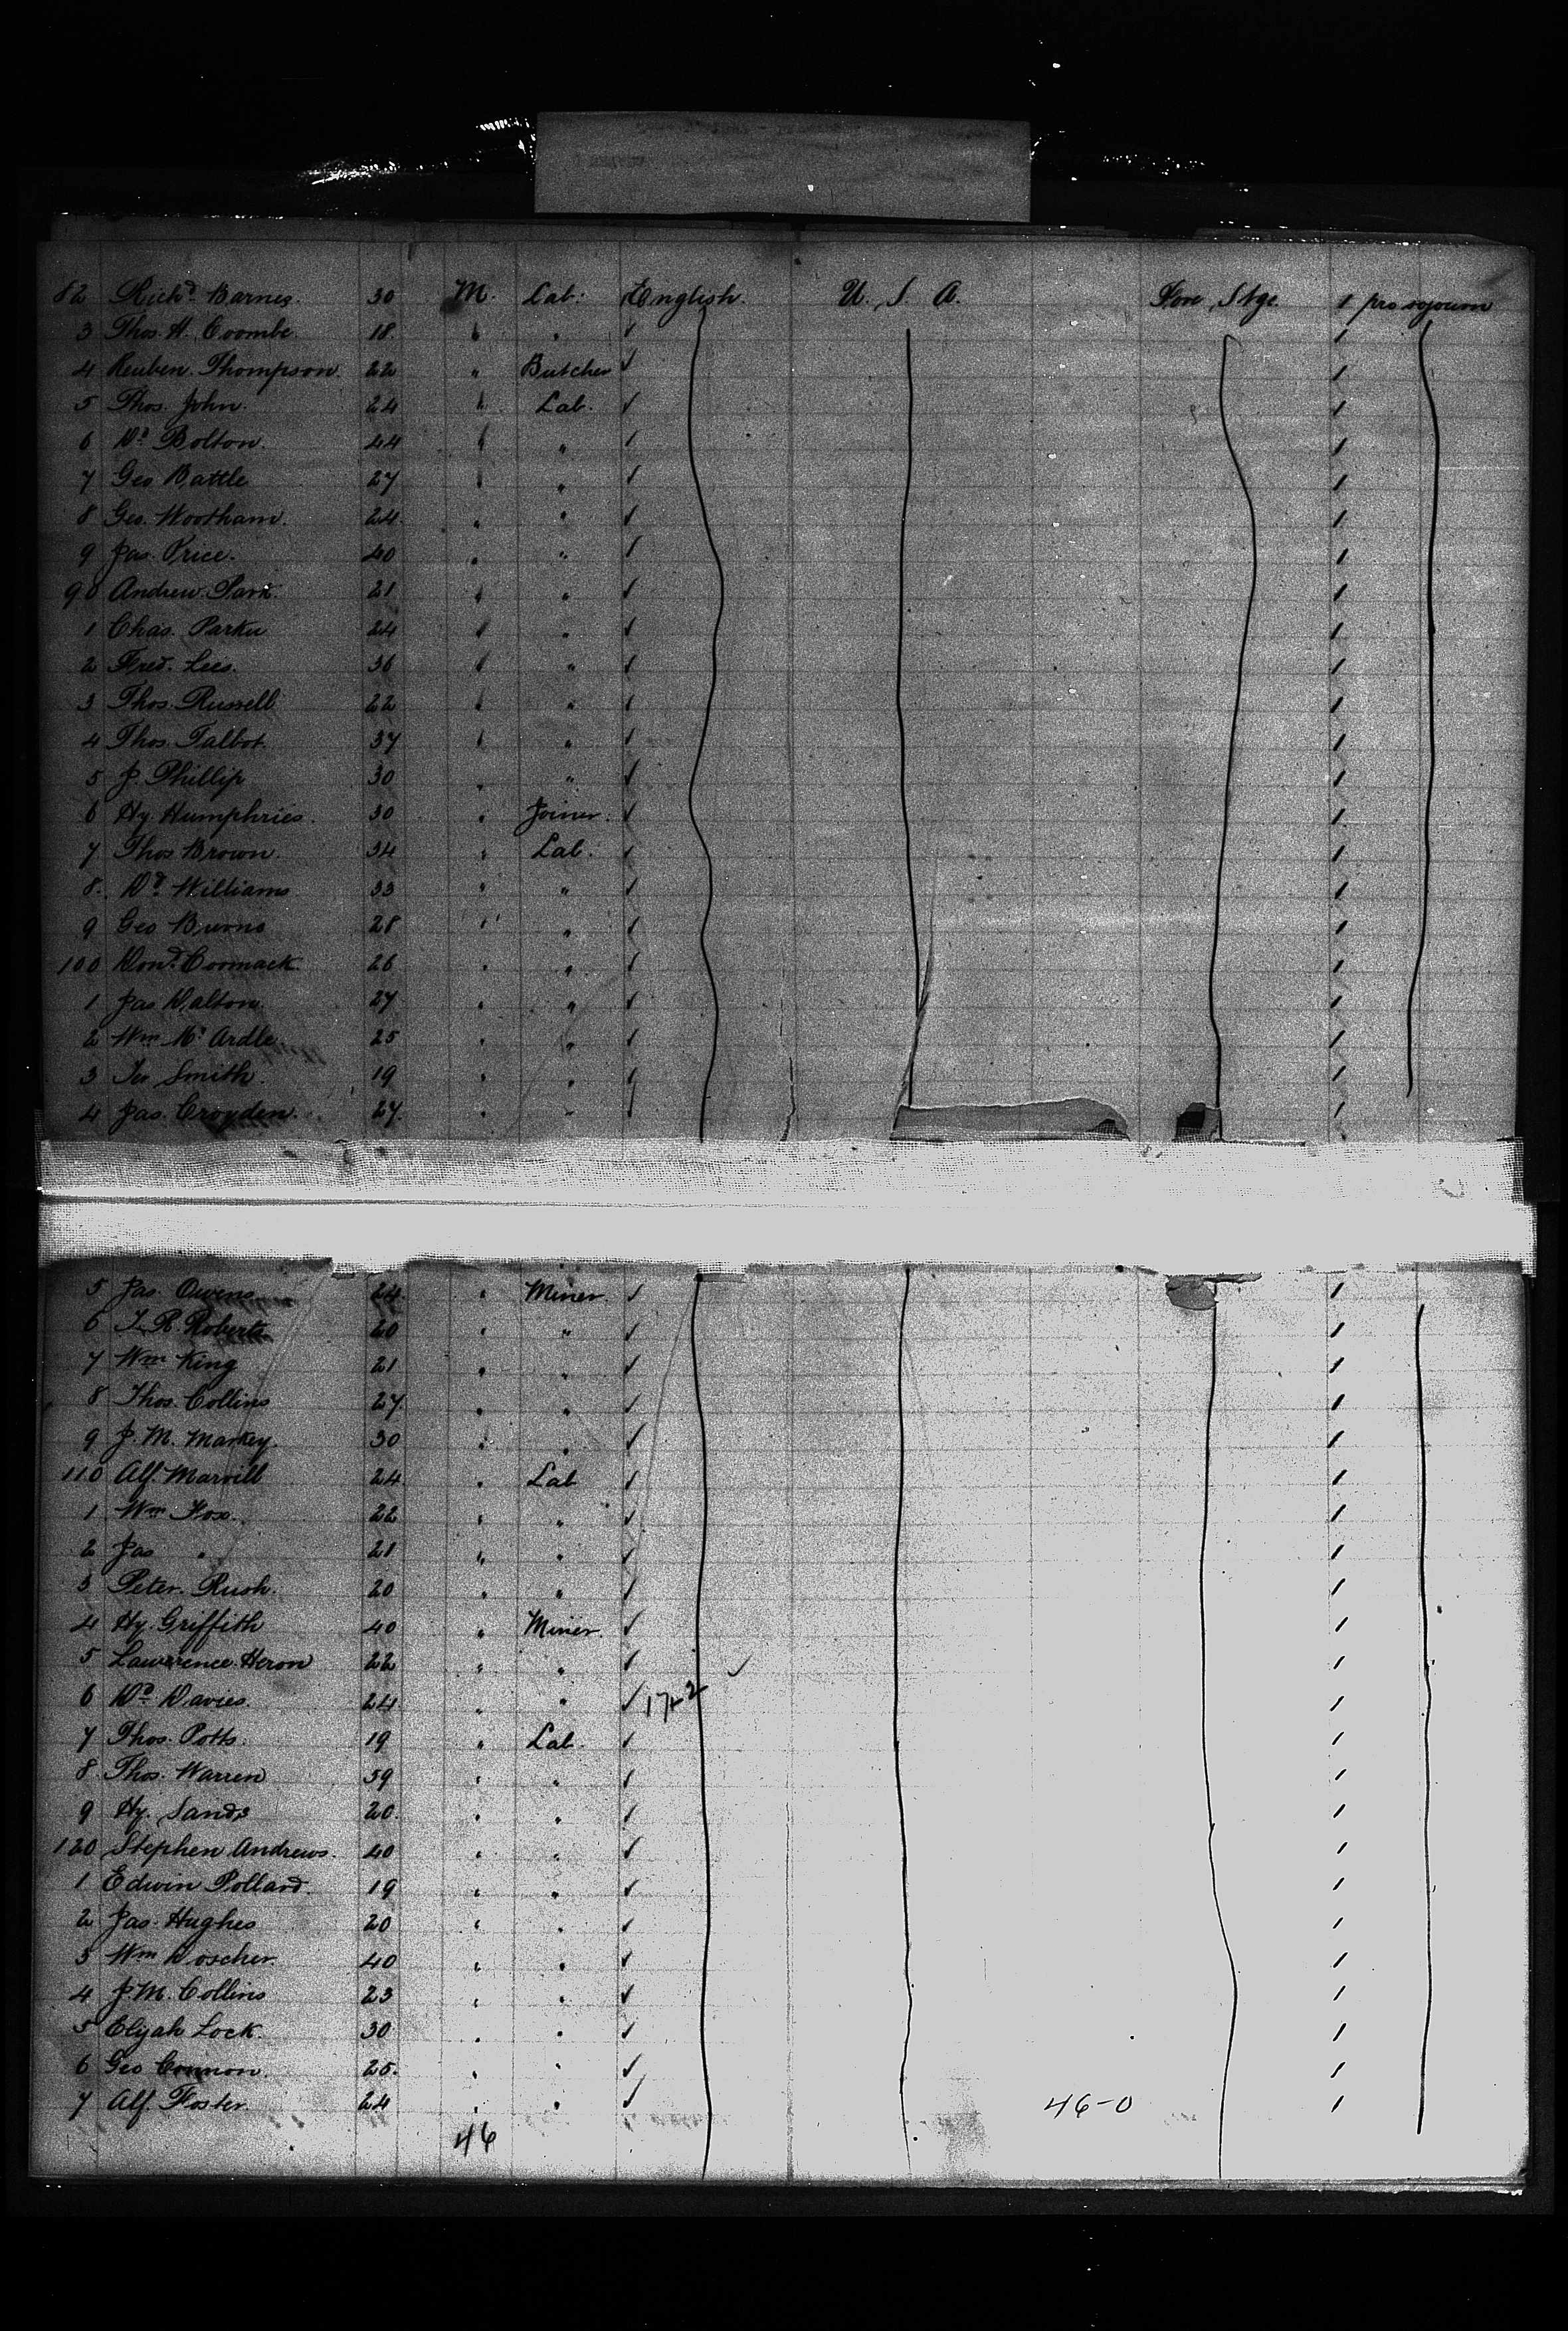 82 Richd. Barnes. 30 M. Lab: English. U. S. A. Stge. 1 pro sojourn
3 Thos. H. Coombe. 18. " " 1
4 Reuben. Thompson. 22 " Butcher 1
5 Thos. John. 24 " Lab. 1
6 Dd. Bolton. 44 " " 1
7 Geo Battle 27 " " 1
8 Geo. Wootham. 24. " " 1
9 Jas. Price. 40 " " 1
90 Andrew. Park. 21 " " 1
1 Chas. Parker 24 " " 1
2 Fred. Lees. 36 " " 1
3 Thos. Russell 22 " " 1
4 Thos. Talbot. 37 " " 1
5 J. Phillip 30 " " 1
6 Hy. Humphries. 30 " Joiner. 1
7 Thos Brown. 34 " Lab. 1
8. Dd. Williams. 33 " " 1
9 Geo Burns 28 " " 1
100 Dond. Cormack. 26 " " 1
1 Jas Dalton. 27 " " 1
2 Wm. Mc Ardle. 25 " " 1
3 Smith. 19 " " 1
4 Jas. Croyden. 27. " " 1
5 Jas. Owens 24. " Miner. 1
6 Roberts 20 " " 1
7 Wm King 21 " " 1
8 Thos. Collins 27. " " 1
9 J. M. Markey. 30 " " 1
110 Alf. Marvill 24. " Lab 1
1 Wm Fox. 22 " " 1
2 Jas " 21 " " 1
3 Peter. Rush. 20 " " 1
4 Hy. Griffith 40 " Miner. 1
5 Lawrence. Heron 22 " " 1
6 Dd. Davies. 24 " " 1
7 Thos. Potts. 19 " Lab. 1
8 Thos. Warren 39 " " 1
9 Hy. Sands 20. " " 1
120 Stephen Andrews. 40 " " 1
1 Edwin Pollard. 19 " " 1
2 Jas. Hughes 20 " " 1
3 Wm Doscher. 40 " " 1
4 J. M. Collins 23 " " 1
5 Elijah Lock. 30 " " 1
6 Geo Connon. 25. " " 1
7 Alf. Foster. 24 " " 46-0 1
46